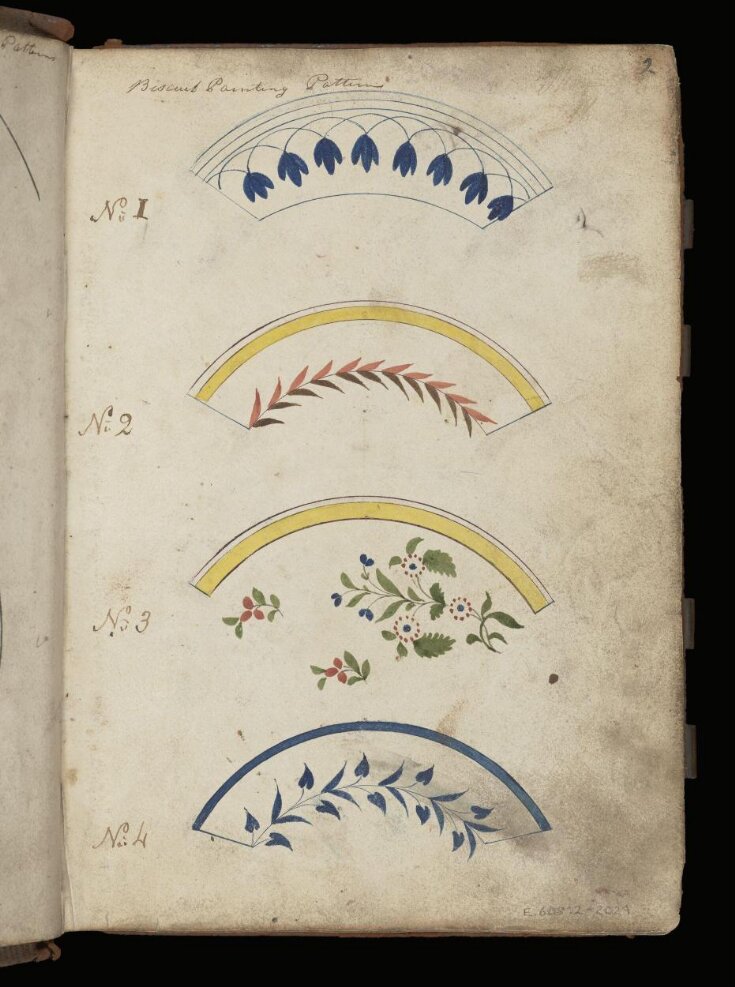 Patterns
Biscuit Painting Patterns
2
No 1
No 2
No 3
No 4